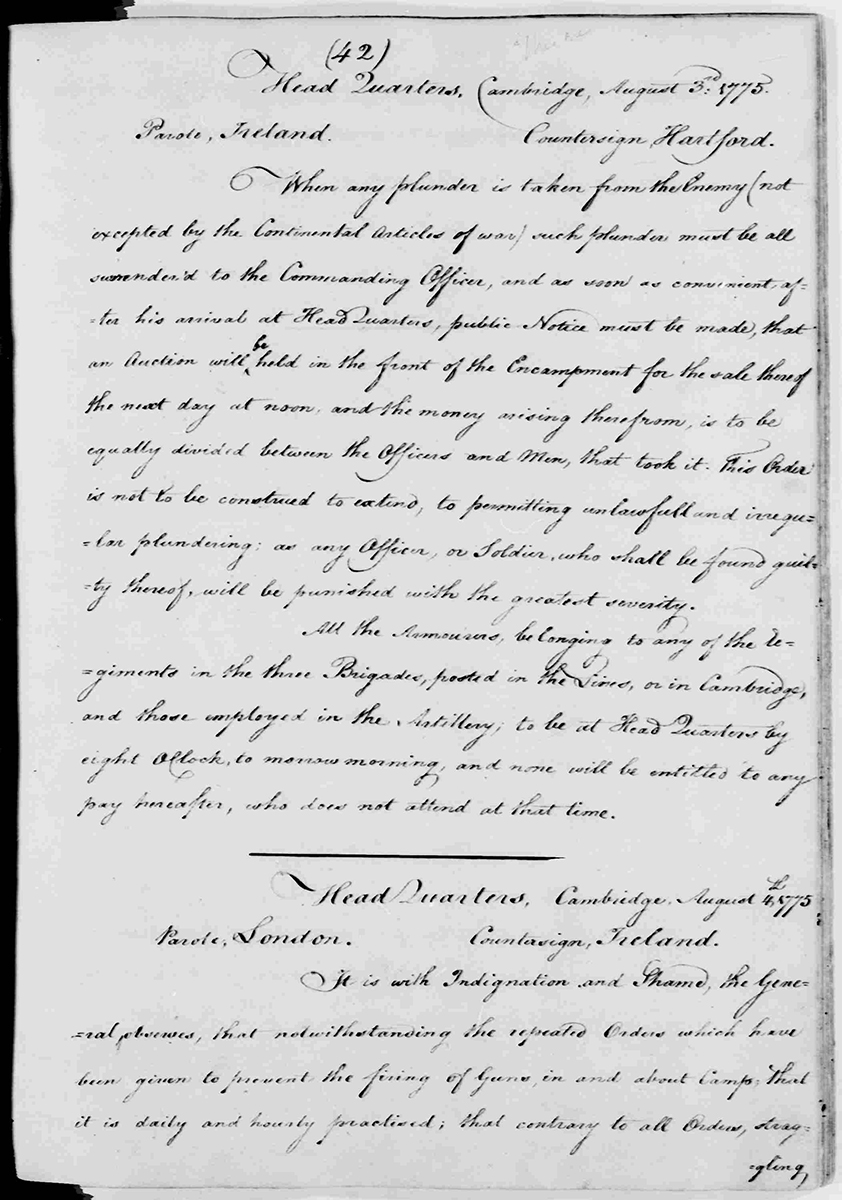 (42)
Head Quarters, Cambridge, August 3rd: 1775.
Parole, Ireland. Countersign, Hartford.
When any plunder is taken from the Enemy (not
excepted by the Continental Articles of war) such plunder must be all
surrender'd to the Commanding Officer, and as soon as convenient af=
=ter his arrival at Head Quarters, public Notice must be made, that
an Auction will be held in the front of the Encampment for the sale thereof
the next day at noon, and the money arising therefrom, is to be
equally divided between the Officers and Men, that took it. This Order
is not to be construed to extend, to permitting unlawfull and irregu=
=lar plundering; as any Officer, or Soldier, who shall be found guil=
=ty thereof, will be punished with the greatest severity.
All the Armourers, belonging to any of the Re=
=giments in the three Brigades, posted in the Lines, or in Cambridge,
and those employed in the Artillery; to be at Head Quarters by
eight OClock, to morrow morning, and none will be entitled to any
pay hereafter, who does not attend at that time.
Head Quarters, Cambridge, August 4th, 1775
Parole, London. Countersign, Ireland.
It is with Indignation and Shame, the Gene=
=ral observes, that notwithstanding the repeated Orders which have
been given to prevent the firing of Guns, in and about Camp; that
it is daily and hourly practised; that contrary to all Orders, strag=
=gling,